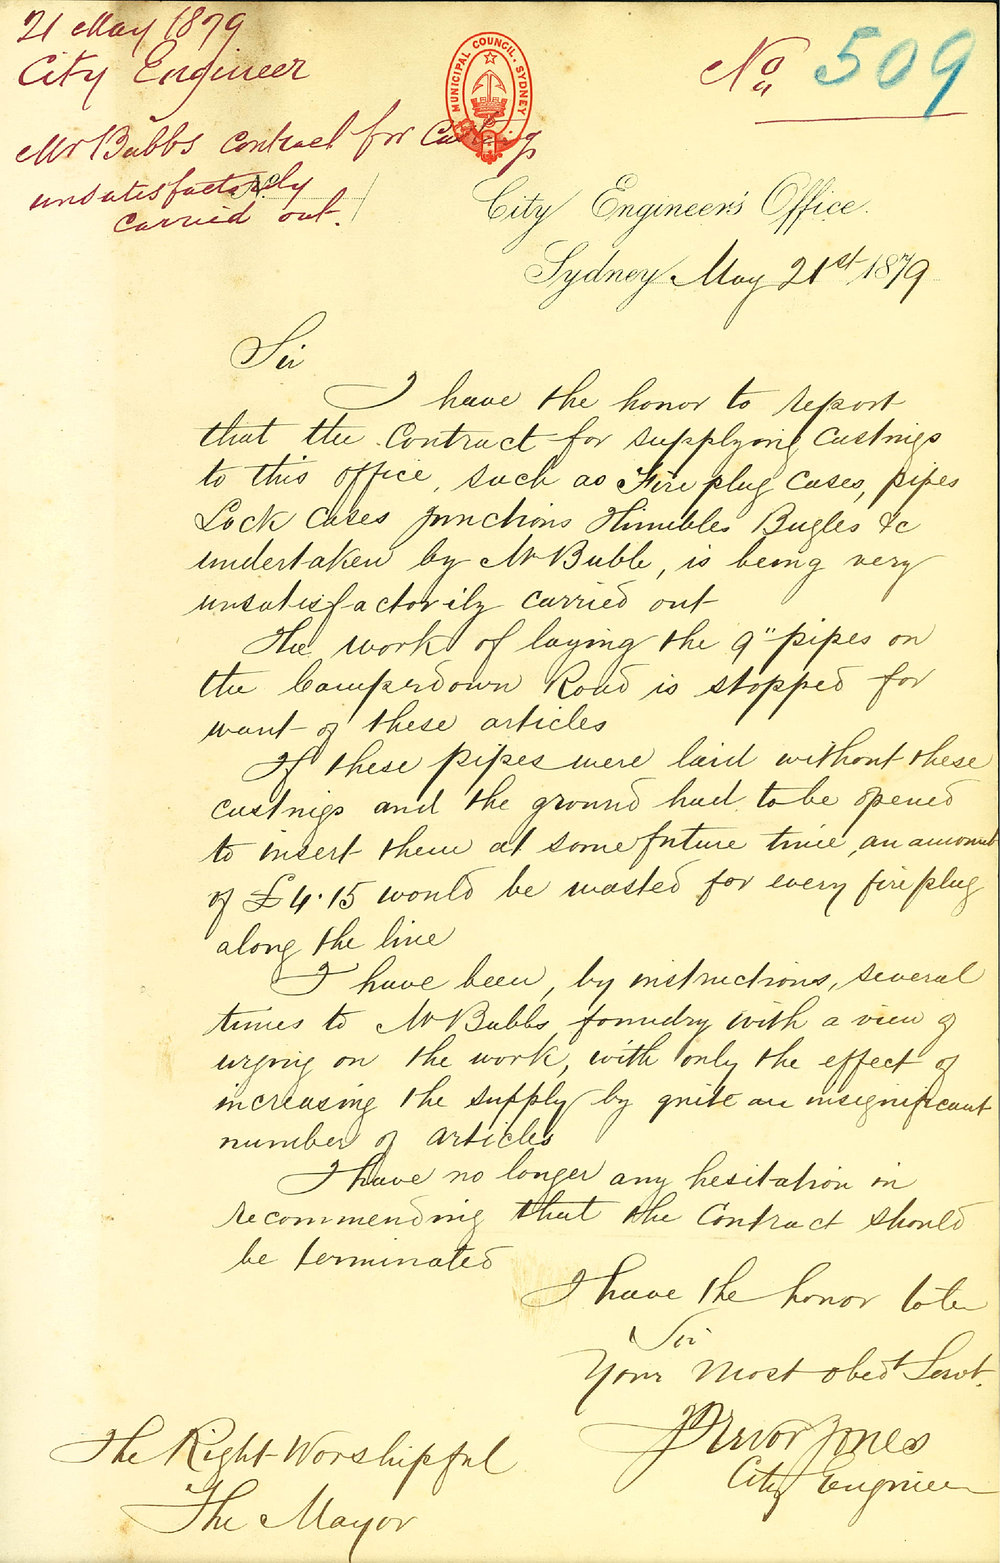 21 May 1879
City Engineer
No 509
Mr Bubbs contract for Castings
unsatisfactorily
carried out.
MUNICIPAL COUNCIL. SYDNEY
City Engineer's Office.
Sydney May 21st 1879
Sir
I have the honor to report
that the Contract for supplying Castings
to this office, such as Fire plug Cases, pipes
Lock Cases junctions Thimbles Bugles &c
undertaken by Mr Bubb, is being very
unsatisfactorily carried out
The work of laying the 9" pipes on
the Camperdown Road is stopped for
want of these articles
If these pipes were laid without these
castings and the ground had to be opened
to insert them at some future time, an amount
of £4.15 would be wasted for every fireplug
along the line
I have been, by instructions, several
times to Mr Bubbs foundry with a view of
urging on the work, with only the effect of
increasing the supply by quite an insignificant
number of articles
I have no longer any hesitation in
recommending that the Contract should
be terminated
I have the honor to be
Sir
Your most obedt Servt.
J Trevor Jones
City Engineer
The Right Worshipful
The Mayor